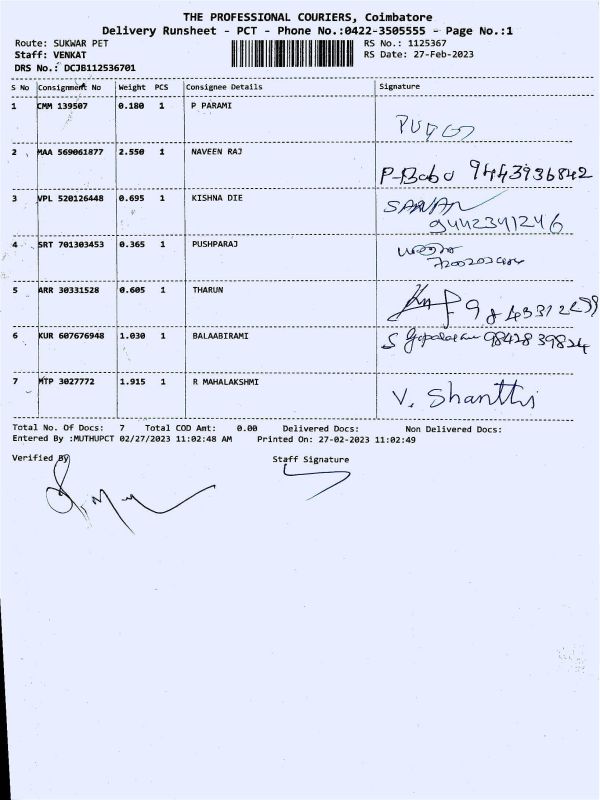 THE PROFESSIONAL COURIERS, Coimbatore
Delivery Runsheet - PCT - Phone No.:0422-3505555 - Page No.:1
Route: SUKWAR PET RS No.: 1125367
Staff: VENKAT RS Date: 27-Feb-2023
DRS No.: DCJB112536701
S No Consignment No Weight PCS Consignee Details Signature
1 CMM 139507 0.180 1 P PARAMI
2 MAA 569061877 2.550 1 NAVEEN RAJ P-Babu 9443936842
3 VPL 520126448 0.695 1 KISHNA DIE SARVAN
9442341246
4 SRT 701303453 0.365 1 PUSHPARAJ
5 ARR 30331528 0.605 1 THARUN
6 KUR 607676948 1.030 1 BALAABIRAMI S 9842839824
7 MTP 3027772 1.915 1 R MAHALAKSHMI V. Shanthi
Total No. Of Docs: 7 Total COD Amt: 0.00 Delivered Docs: Non Delivered Docs:
Entered By :MUTHUPCT 02/27/2023 11:02:48 AM Printed On: 27-02-2023 11:02:49
Verified By Staff Signature